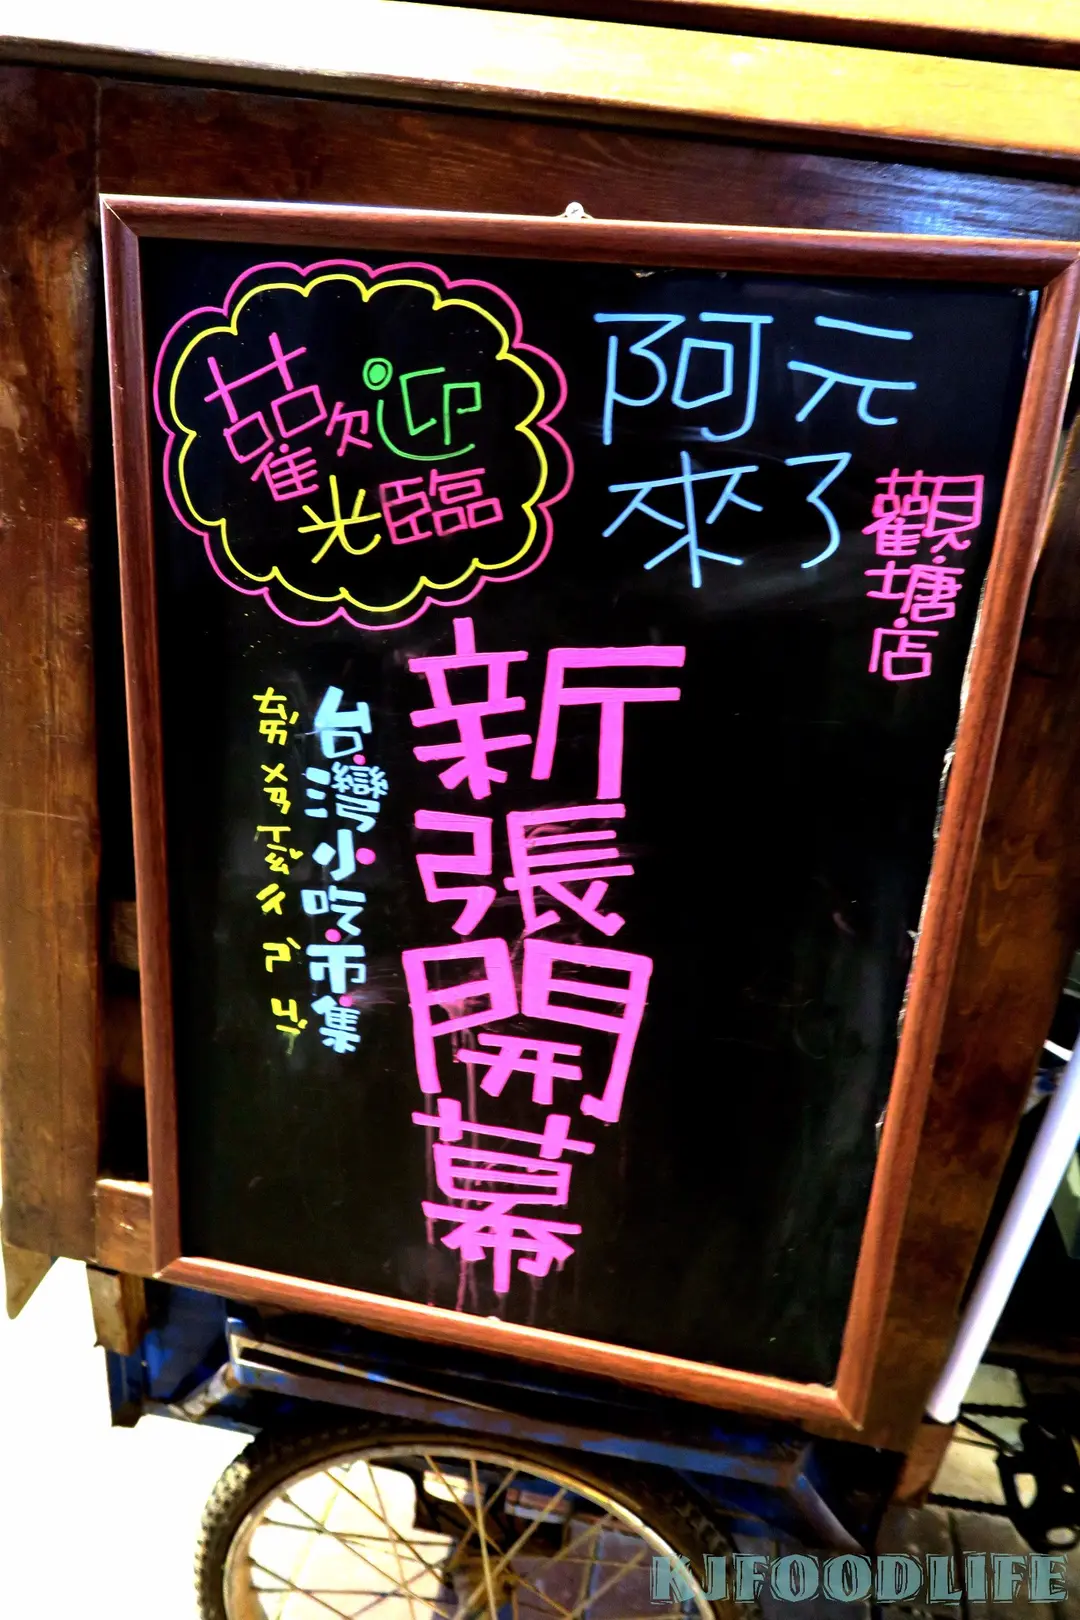 歡迎
光臨
阿元
來了
觀塘店
新張開幕
台灣小吃市集
ㄊㄞˊ ㄨㄢ ㄒㄧㄠˇ ㄔ ㄕˋ ㄐㄧˊ
KJFOODLIFE